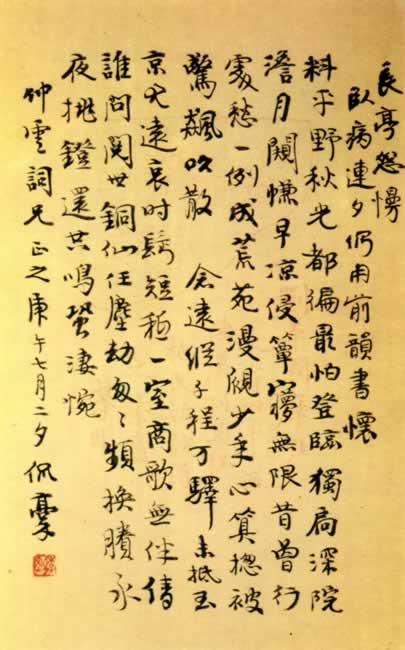 長亭怨慢
臥病連夕仍用前韻書懷
料平野秋光都徧最怕登臨獨扃深院
澹月闌㡘早涼侵簟夢無限昔曾行
處愁一例成荒苑漫覷少年心算揔被
驚飆吹散 念遠縱千程万驛未抵玉
京天遠哀時鬢短秪一室商歌無伴倩
誰問閱世銅仙任塵劫匆〻頻換賸永
夜挑鐙還共鳴蛩淒惋
雲詞兄正之庚午七月二夕侃稾